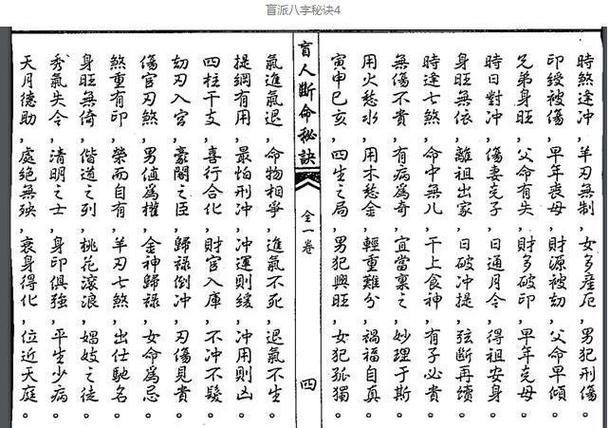 盲派八字秘诀4
時煞逢冲，羊刃無制，女多產厄，男犯刑傷。
印綬被傷，早年喪母，財源被劫，父命早傾。
兄弟身旺，父命有失，財多破印，早年尅母。
時日對冲，傷妻尅子，日通月令，得祖安身。
身旺無依，離祖出家，日破冲提，弦斷再續。
時逢七煞，命中無兒，干上食神，有子必貴。
無傷不貴，有病為奇，宜當稟之，妙理于斯。
用火愁水，用木愁金，輕重難分，禍福自真。
寅申巳亥，四生之局，男犯興旺，女犯孤獨。
盲人斷命秘訣 全一卷 四
氣進氣退，命物相爭，進氣不死，退氣不生。
提綱有用，最怕刑冲，冲運則緩，冲用則凶。
四柱干支，喜行合化，財官入庫，不冲不髮。
劫刃入官，豪閣之臣，歸祿倒冲，刃傷見貴。
傷官刃煞，男值為權，金神歸祿，女命為忌。
煞重有印，榮而自有，羊刃七煞，出仕馳名。
身旺無倚，僧道之列，桃花滾浪，娼妓之徒。
秀氣失令，清明之士，身印俱強，平生少病。
天月德助，處絕無殃，衰身得化，位近天庭。